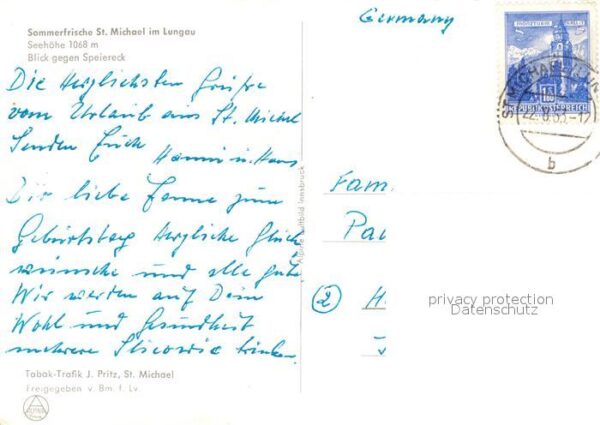 Sommerfrische St. Michael im Lungau
Seehöhe 1068 m
Blick gegen Speiereck
Die Herzlichsten Grüße
vom Urlaub aus St. Michel
Senden Euch
Hanni u. Hans
Dir liebe Fanne zum
Geburtstag Herzliche Glück
wünsche und alle gute
Wir werden auf Dein
Wohl und Gesundheit
mehrere Sliwowic trinken.
Tabak-Trafik J. Pritz, St. Michael
Freigegeben v. Bm. f. Lv.
Alpine Luftbild Innsbruck
Germany
REPUBLIK ÖSTERREICH
ST. MICHAEL
b
Fam.
Pau
② H
privacy protection
Datenschutz